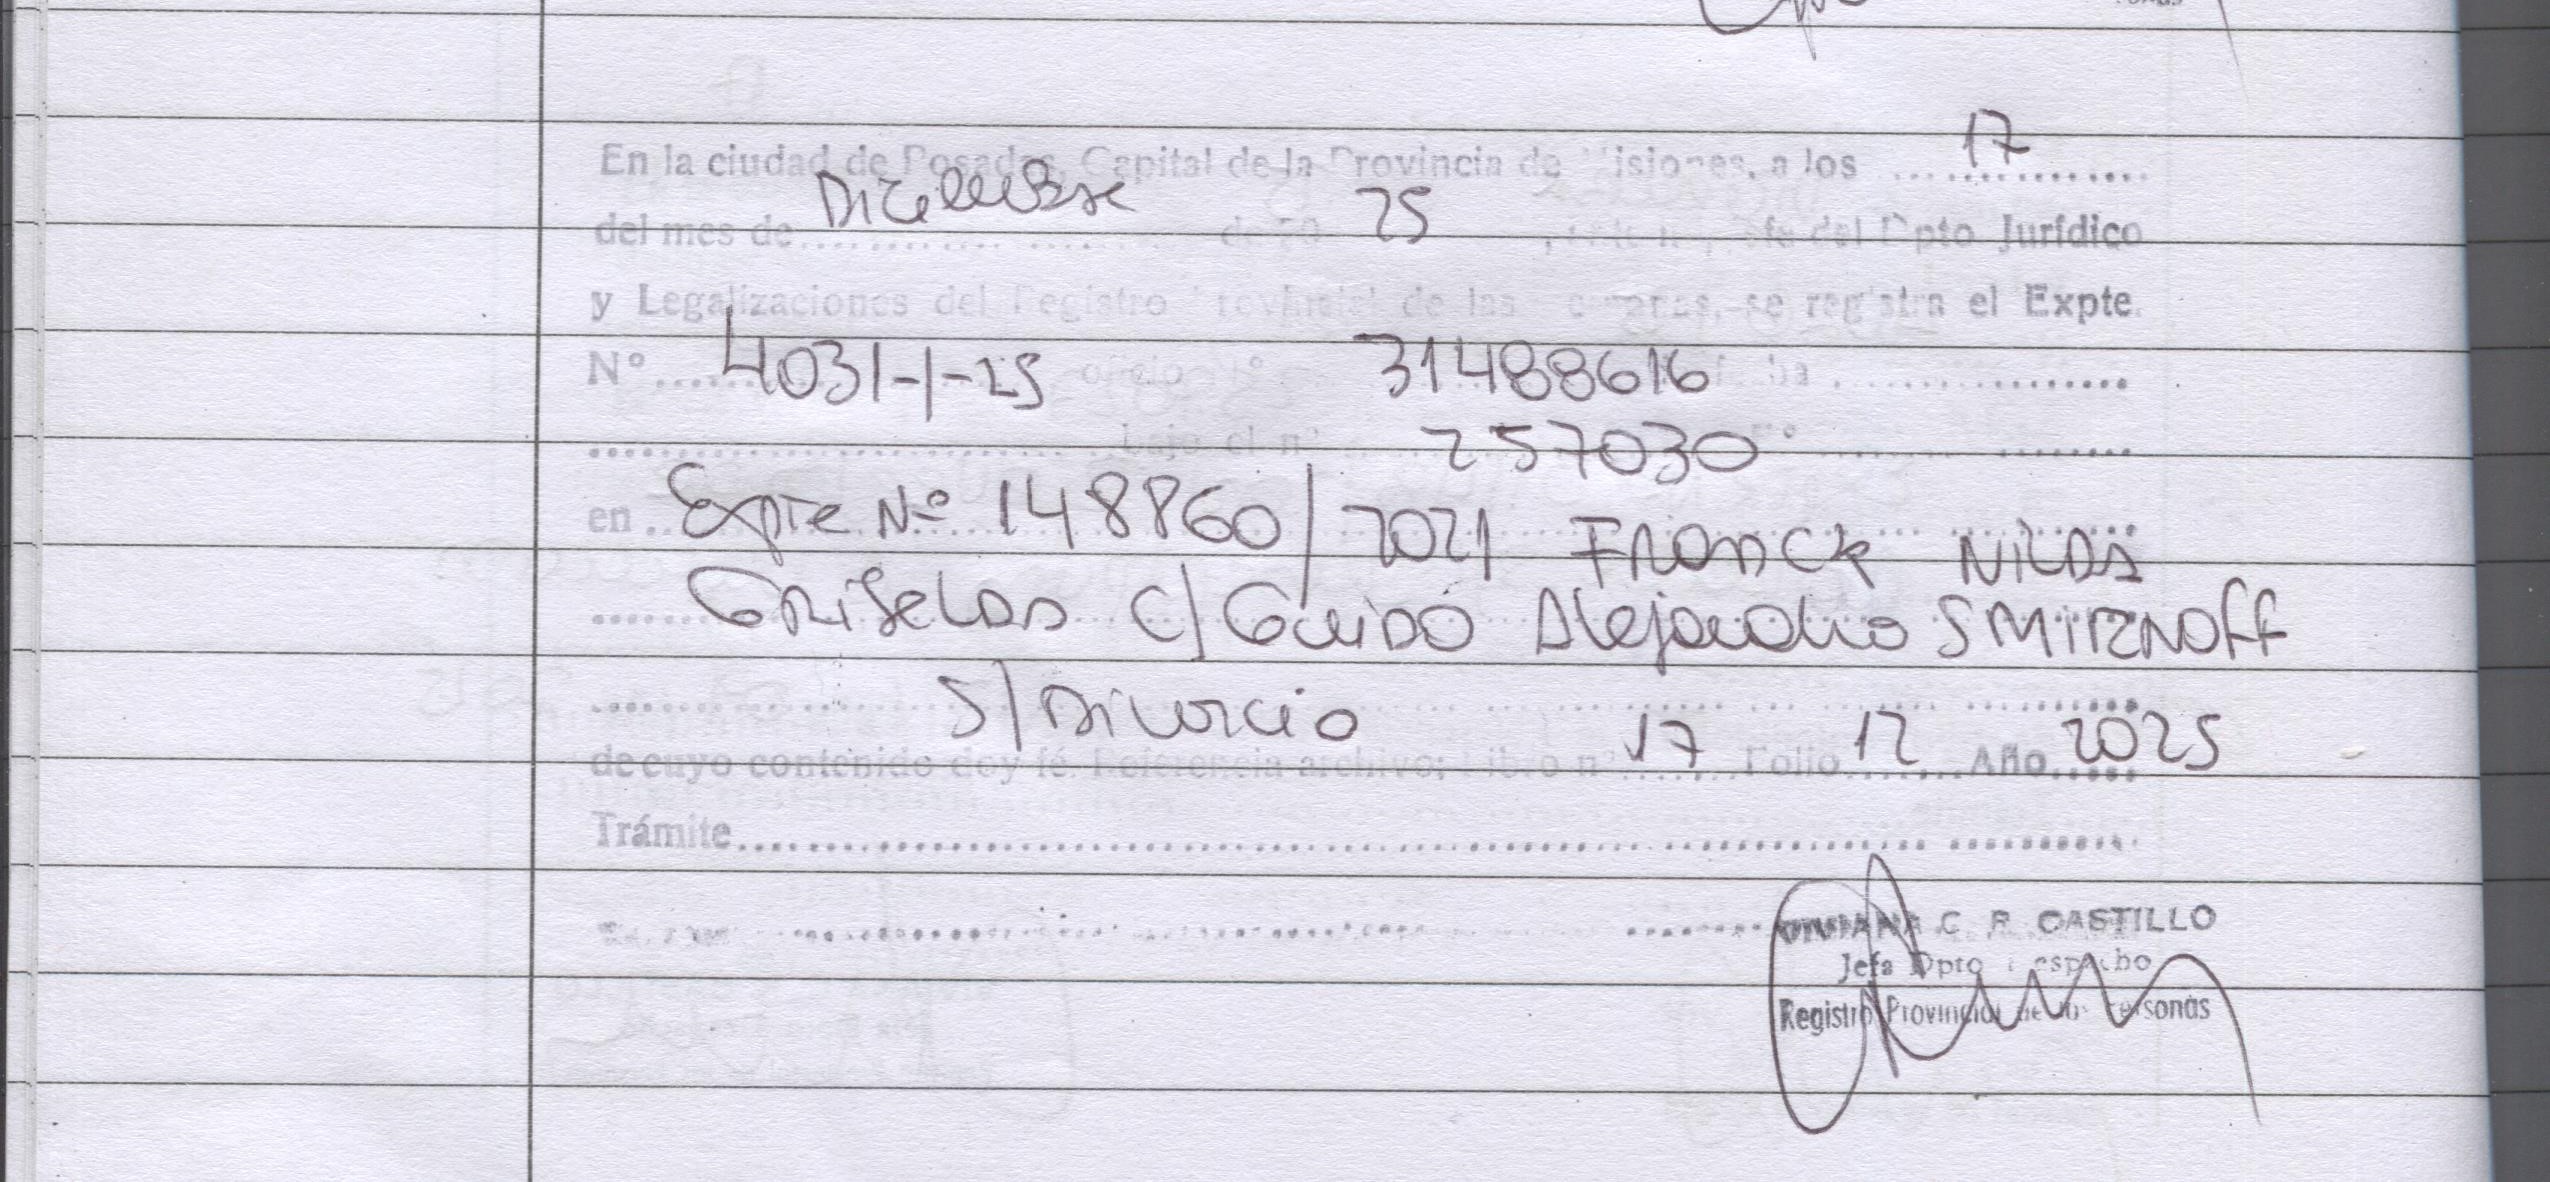 En la ciudad de Posadas, Capital de la Provincia de Misiones, a los 17
del mes de Diciembre de 20 25, Jefe del Dpto Jurídico
y Legalizaciones del Registro Provincial de las Personas, se registra el Expte.
N° 4031-1-25 oficio N° 31488616
bajo el n° 257030
en Expte Nº 148860/2021 Franck Nilda
Griselda c/ Guido Alejandro Smirnoff
S/ Divorcio
de cuyo contenido doy fé. Referencia archivo: Libro n° 17 Folio 12 Año 2025
Trámite
VIVIANA C. R. CASTILLO
Jefa Dpto Despacho
Registro Provincial de las Personas